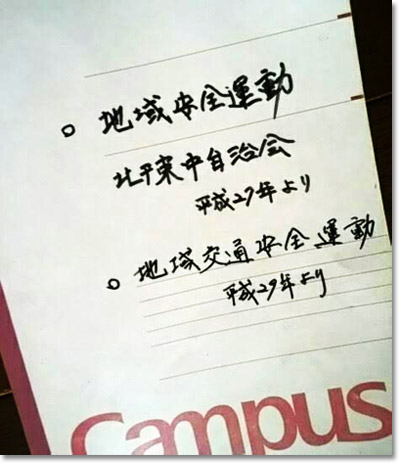 ○ 地域安全運動
北平東中自治会
平成27年より
○ 地域交通安全運動
平成29年より
Campus